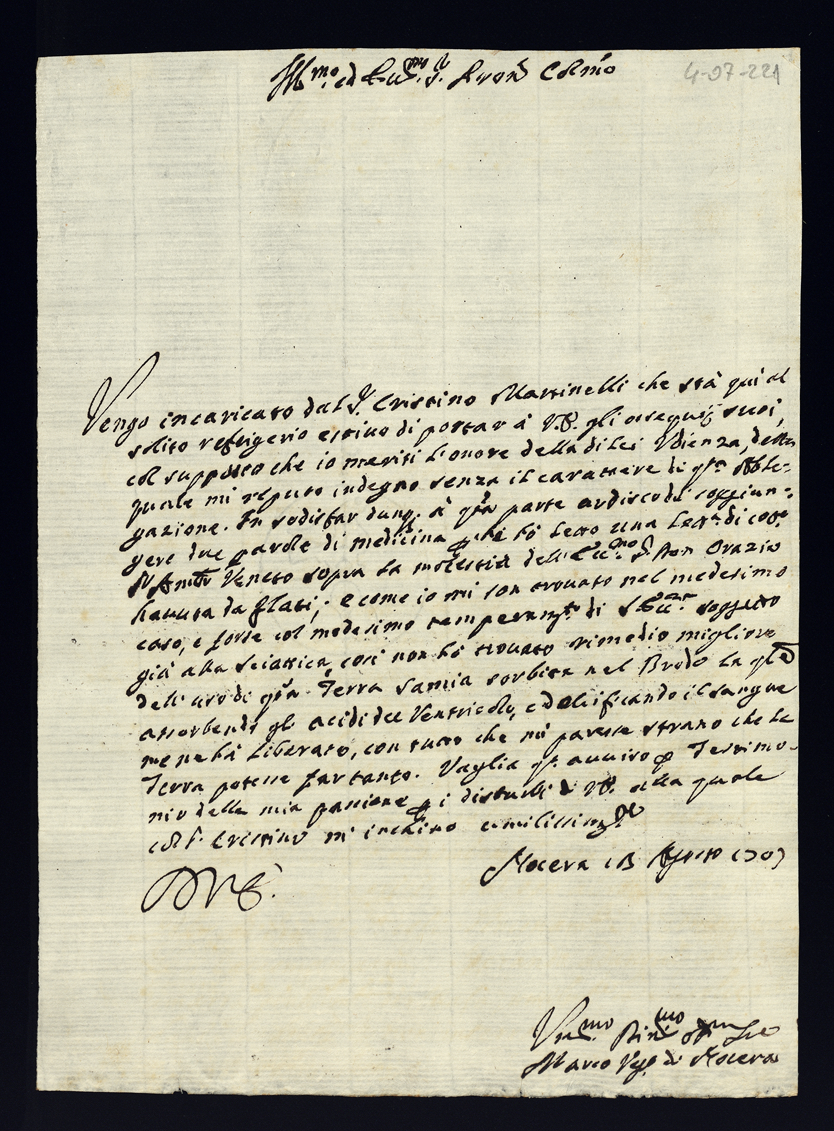 Ill.mo ed Ecc.mo S.r Pron Colmo
4-07-221
Vengo incaricato dal S.r Cristino Martinelli che stà qui al
solito refrigerio estivo di portar à V.E. gli ossequij suoi,
col supposto che io meriti l'onore della di Lei Udienza, della
quale mi reputo indegno senza il carattere di q.ta Able-
gazione. In sodisfar dunq. à q.ta parte ardisco di soggiun-
gere due parole di medicina hò letto una di cot.o
S.r Amb.r Veneto sopra la molestia dell'Ecc.mo S. Don Orazio
havuta da flati; e come io mi son trovato nel medesimo
caso, e forse col medesimo temperam.to di S. Ecc.za soggetto
già alla sciatica, così non hò trovato rimedio migliore
dell'uso di q.ta Terra Samia sorbita nel Brodo la q.le
assorbendo gli acidi del Ventricolo, e dolcificando il sangue
me ne hà liberato, con tutto che mi paresse strano che la
Terra potesse far tanto. Vaglia q.to avviso p Testimo-
nio della mia passione p i disturbi di V.E. alla quale
col S.r Cristino m'inchino umilissimam.te
Nocera 13 Agosto 1707
D V E.
Um.mo Div.mo Obb.mo Se
Marco Ves.o di Nocera